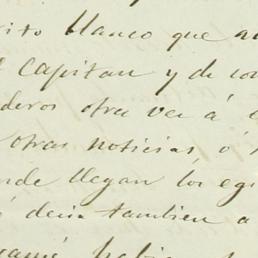 rito blanco que a
l Capitan y de co
deros otra vez á e
otras noticias, ó
nde llegan los eg
s decia tambien a